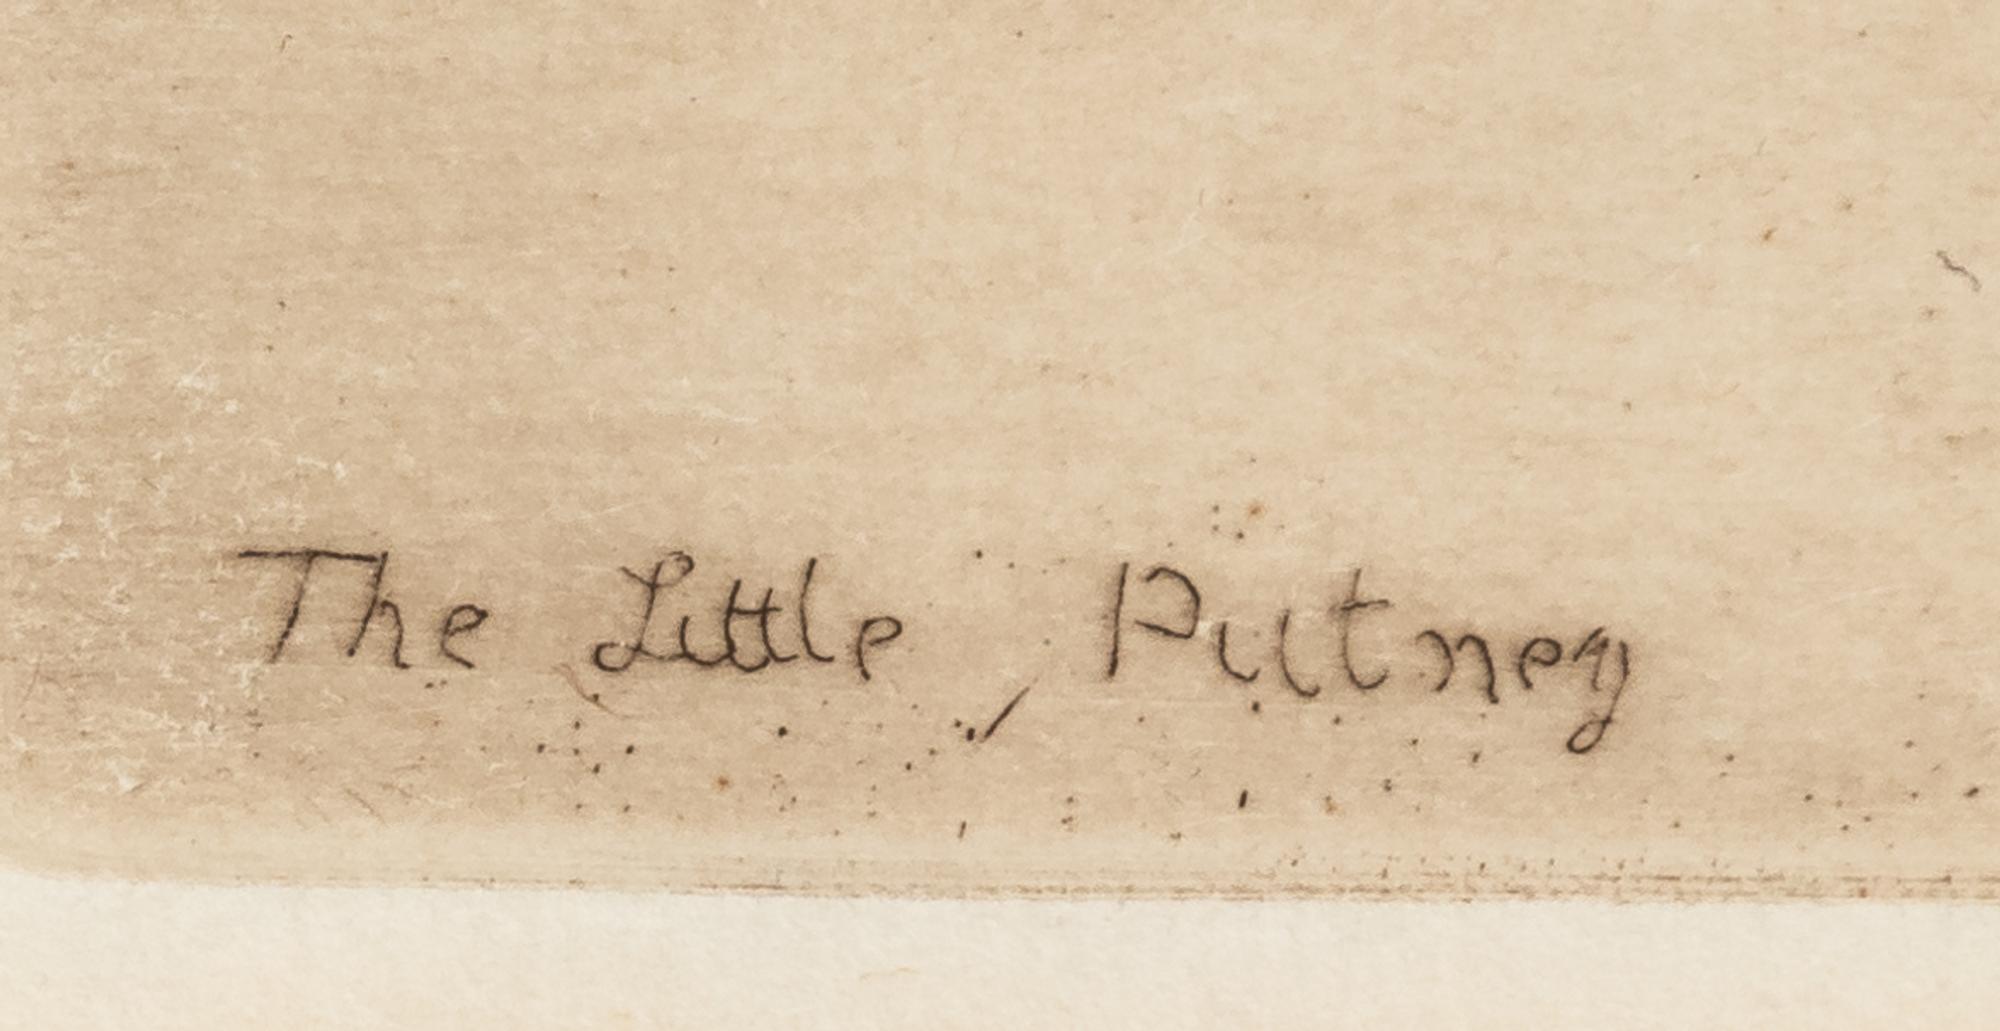 The Little Putney